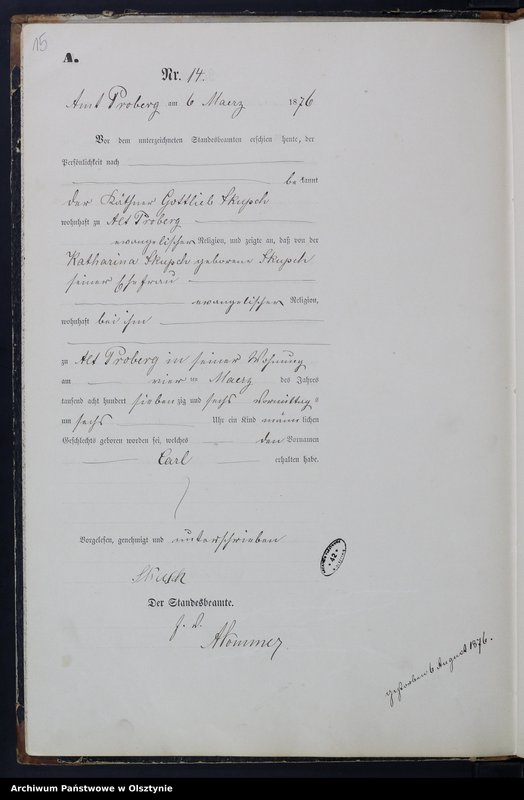 15
A.
Nr. 14.
Amt Proberg am 6 Maerz 1876
Vor dem unterzeichneten Standesbeamten erschien heute, der
Persönlichkeit nach
bekannt
der Käthner Gottlieb Skupch
wohnhaft zu Alt Proberg
evangelischer Religion, und zeigte an, daß von der
Katharina Skupch geborene Skupch
seiner Ehefrau
evangelischer Religion,
wohnhaft bei ihm
zu Alt Proberg in seiner Wohnung
am vier ten Maerz des Jahres
tausend acht hundert siebenzig und sechs Vormittags
um sechs Uhr ein Kind männlichen
Geschlechts geboren worden sei, welches den Vornamen
Carl erhalten habe.
Vorgelesen, genehmigt und unterschrieben
Der Standesbeamte.
gestorben 6 August 1876.
42
Archiwum Państwowe w Olsztynie